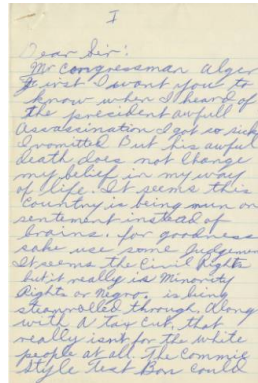 I
Dear Sir:
Mr Congressman Alger
First I want you to
know when I heard of
the president awfull
Assassination I got so sick
I vomitted But his awful
death does not change
my belief in my way
of life. It seems this
country is being run on
sentement instead of
brains. for goodness
sake use some Judgement
It seems the Civil Rights
but it really is Minority
Rights or Negro. is being
steamrolled through, Along
with A tax cut, that
really isnt for the white
people at all. The Commie
Style Test Ban could